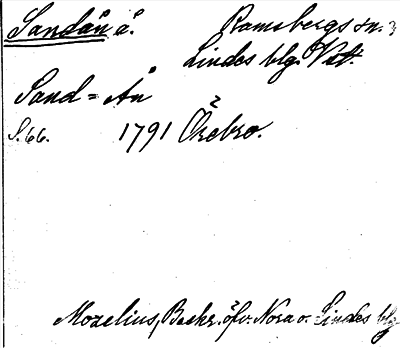 Sandån å. Ramsbergs sn.
Lindes blg. Vstl.
Sand=Ån
S. 66. 1791 Örebro.
Mozelius, Beskr. öfv. Nora o. Lindes blg